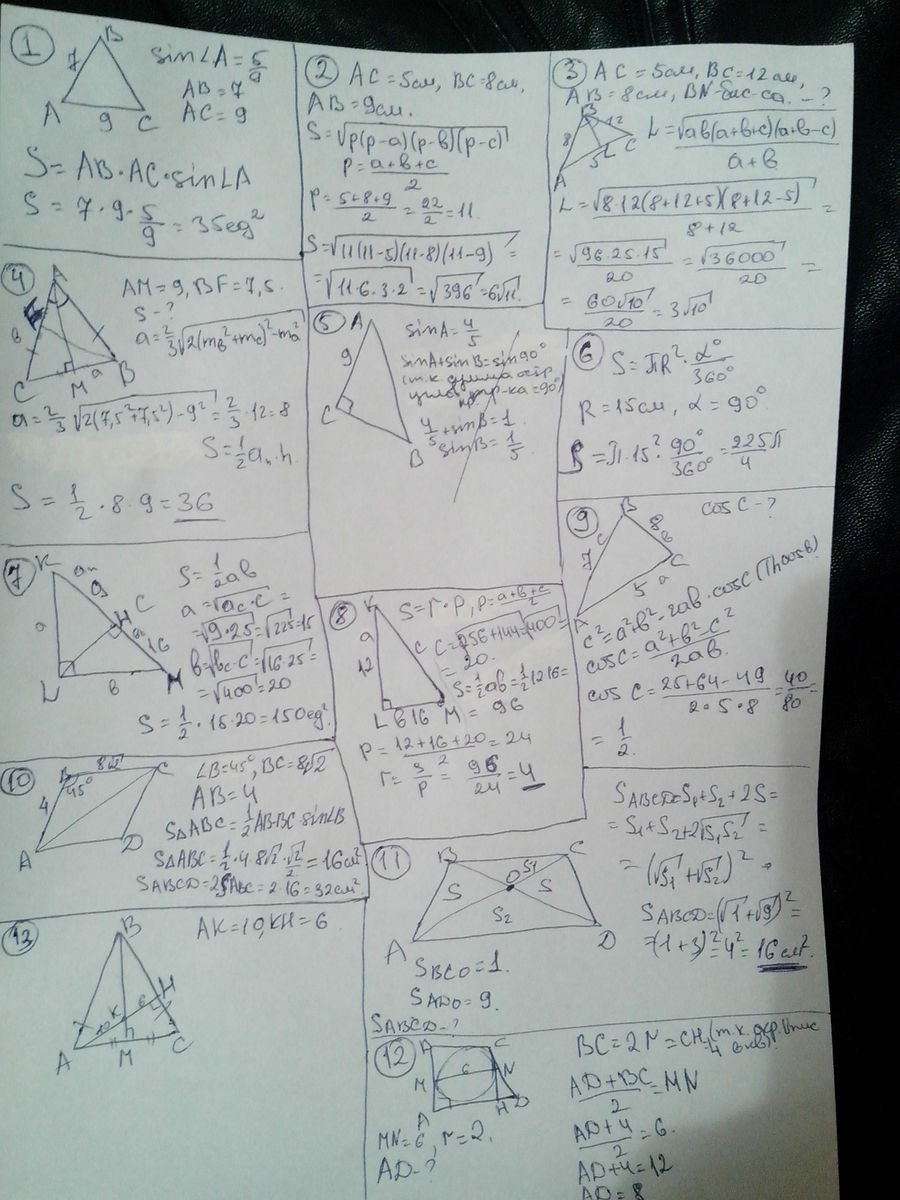 1
B
7
A 9 C
sin∠A = 5/9
AB = 7
AC = 9
S = AB · AC · sin∠A
S = 7 · 9 · 5/9 = 35 eg²
2 AC = 5см, BC = 8см,
AB = 9см.
S = √p(p-a)(p-b)(p-c)
p = a+b+c/2
p = 5+8+9/2 = 22/2 = 11.
S = √11(11-5)(11-8)(11-9) =
= √11·6·3·2 = √396 = 6√11
3 AC = 5см, BC = 12см,
AB = 8см, BN-бис-са. - ?
B
8 12
5 C
A
L = √ab(a+b+c)(a+b-c)/a+b
L = √8·12(8+12+5)(8+12-5)/8+12 =
= √96·25·15/20 = √36000/20 =
= 60√10/20 = 3√10
4
C M a B
AM = 9, BF = 7,5.
S - ?
a = 2/3√2(mb²+mc²)-ma²
a = 2/3√2(7,5²+7,5²)-9² = 2/3·12 = 8
S = 1/2 aₙ·h.
S = 1/2 · 8 · 9 = 36
5
A
9
C
B
sinA = 4/5
sinA + sinB = sin90°
(т.к. сумма остр.
углов пр тр-ка = 90°)
4/5 + sinB = 1
sinB = 1/5
6
S = πR² · α°/360°
R = 15см, α = 90°
S = π·15² · 90°/360° = 225π/4
7
K ac
9 C
a H
bc
16
L b M
S = 1/2ab
a = √ac·c =
= √9·25 = √225 = 15
b = √bc·c = √16·25 =
= √400 = 20
S = 1/2 · 15 · 20 = 150 eg².
8
K
a
12 C
L b 16 M
S = r · p, p = a+b+c/2
C = √256+144 = √400 =
= 20.
S = 1/2ab = 1/2 12 16 =
= 96
P = 12+16+20/2 = 24
r = S/P = 96/24 = 4
9
cosC - ?
B
c 8
7 b
C
5 a
A
c² = a²+b²-2ab·cosC (Th cosв)
cosC = a²+b²-c²/2ab.
cosC = 25+64-49/2·5·8 = 40/80 =
= 1/2.
10
B 8√2 C
4 45°
A D
∠B = 45°, BC = 8√2
AB = 4
S△ABC = 1/2 AB·BC·sin∠B
S△ABC = 1/2·4·8√2·√2/2 = 16см²
SABCD = 2SABC = 2·16 = 32см².
11
B C
O S1
S S
S2
A D
SBCO = 1.
SADO = 9.
SABCD - ?
SABCD = S1 + S2 + 2S =
= S1 + S2 + 2√S1S2 =
= (√S1 + √S2)².
SABCD = (√1 + √9)² =
= (1+3)² = 4² = 16см².
13
AK = 10, KH = 6
B
H
10 K 6
A M C
12
C
6
M N
A H D
MN = 6, r = 2.
AD - ?
BC = 2r = CH (т.к. окр. впис
в кв) = 4
AD+BC/2 = MN
AD+4/2 = 6.
AD+4 = 12
AD = 8